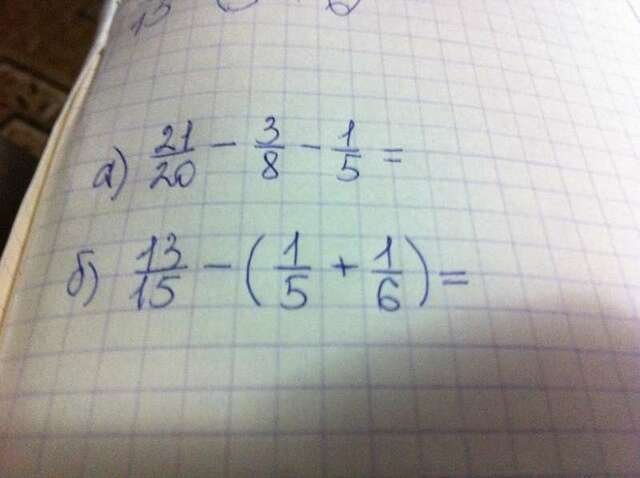 а) 21/20 - 3/8 - 1/5 =
б) 13/15 - (1/5 + 1/6) =